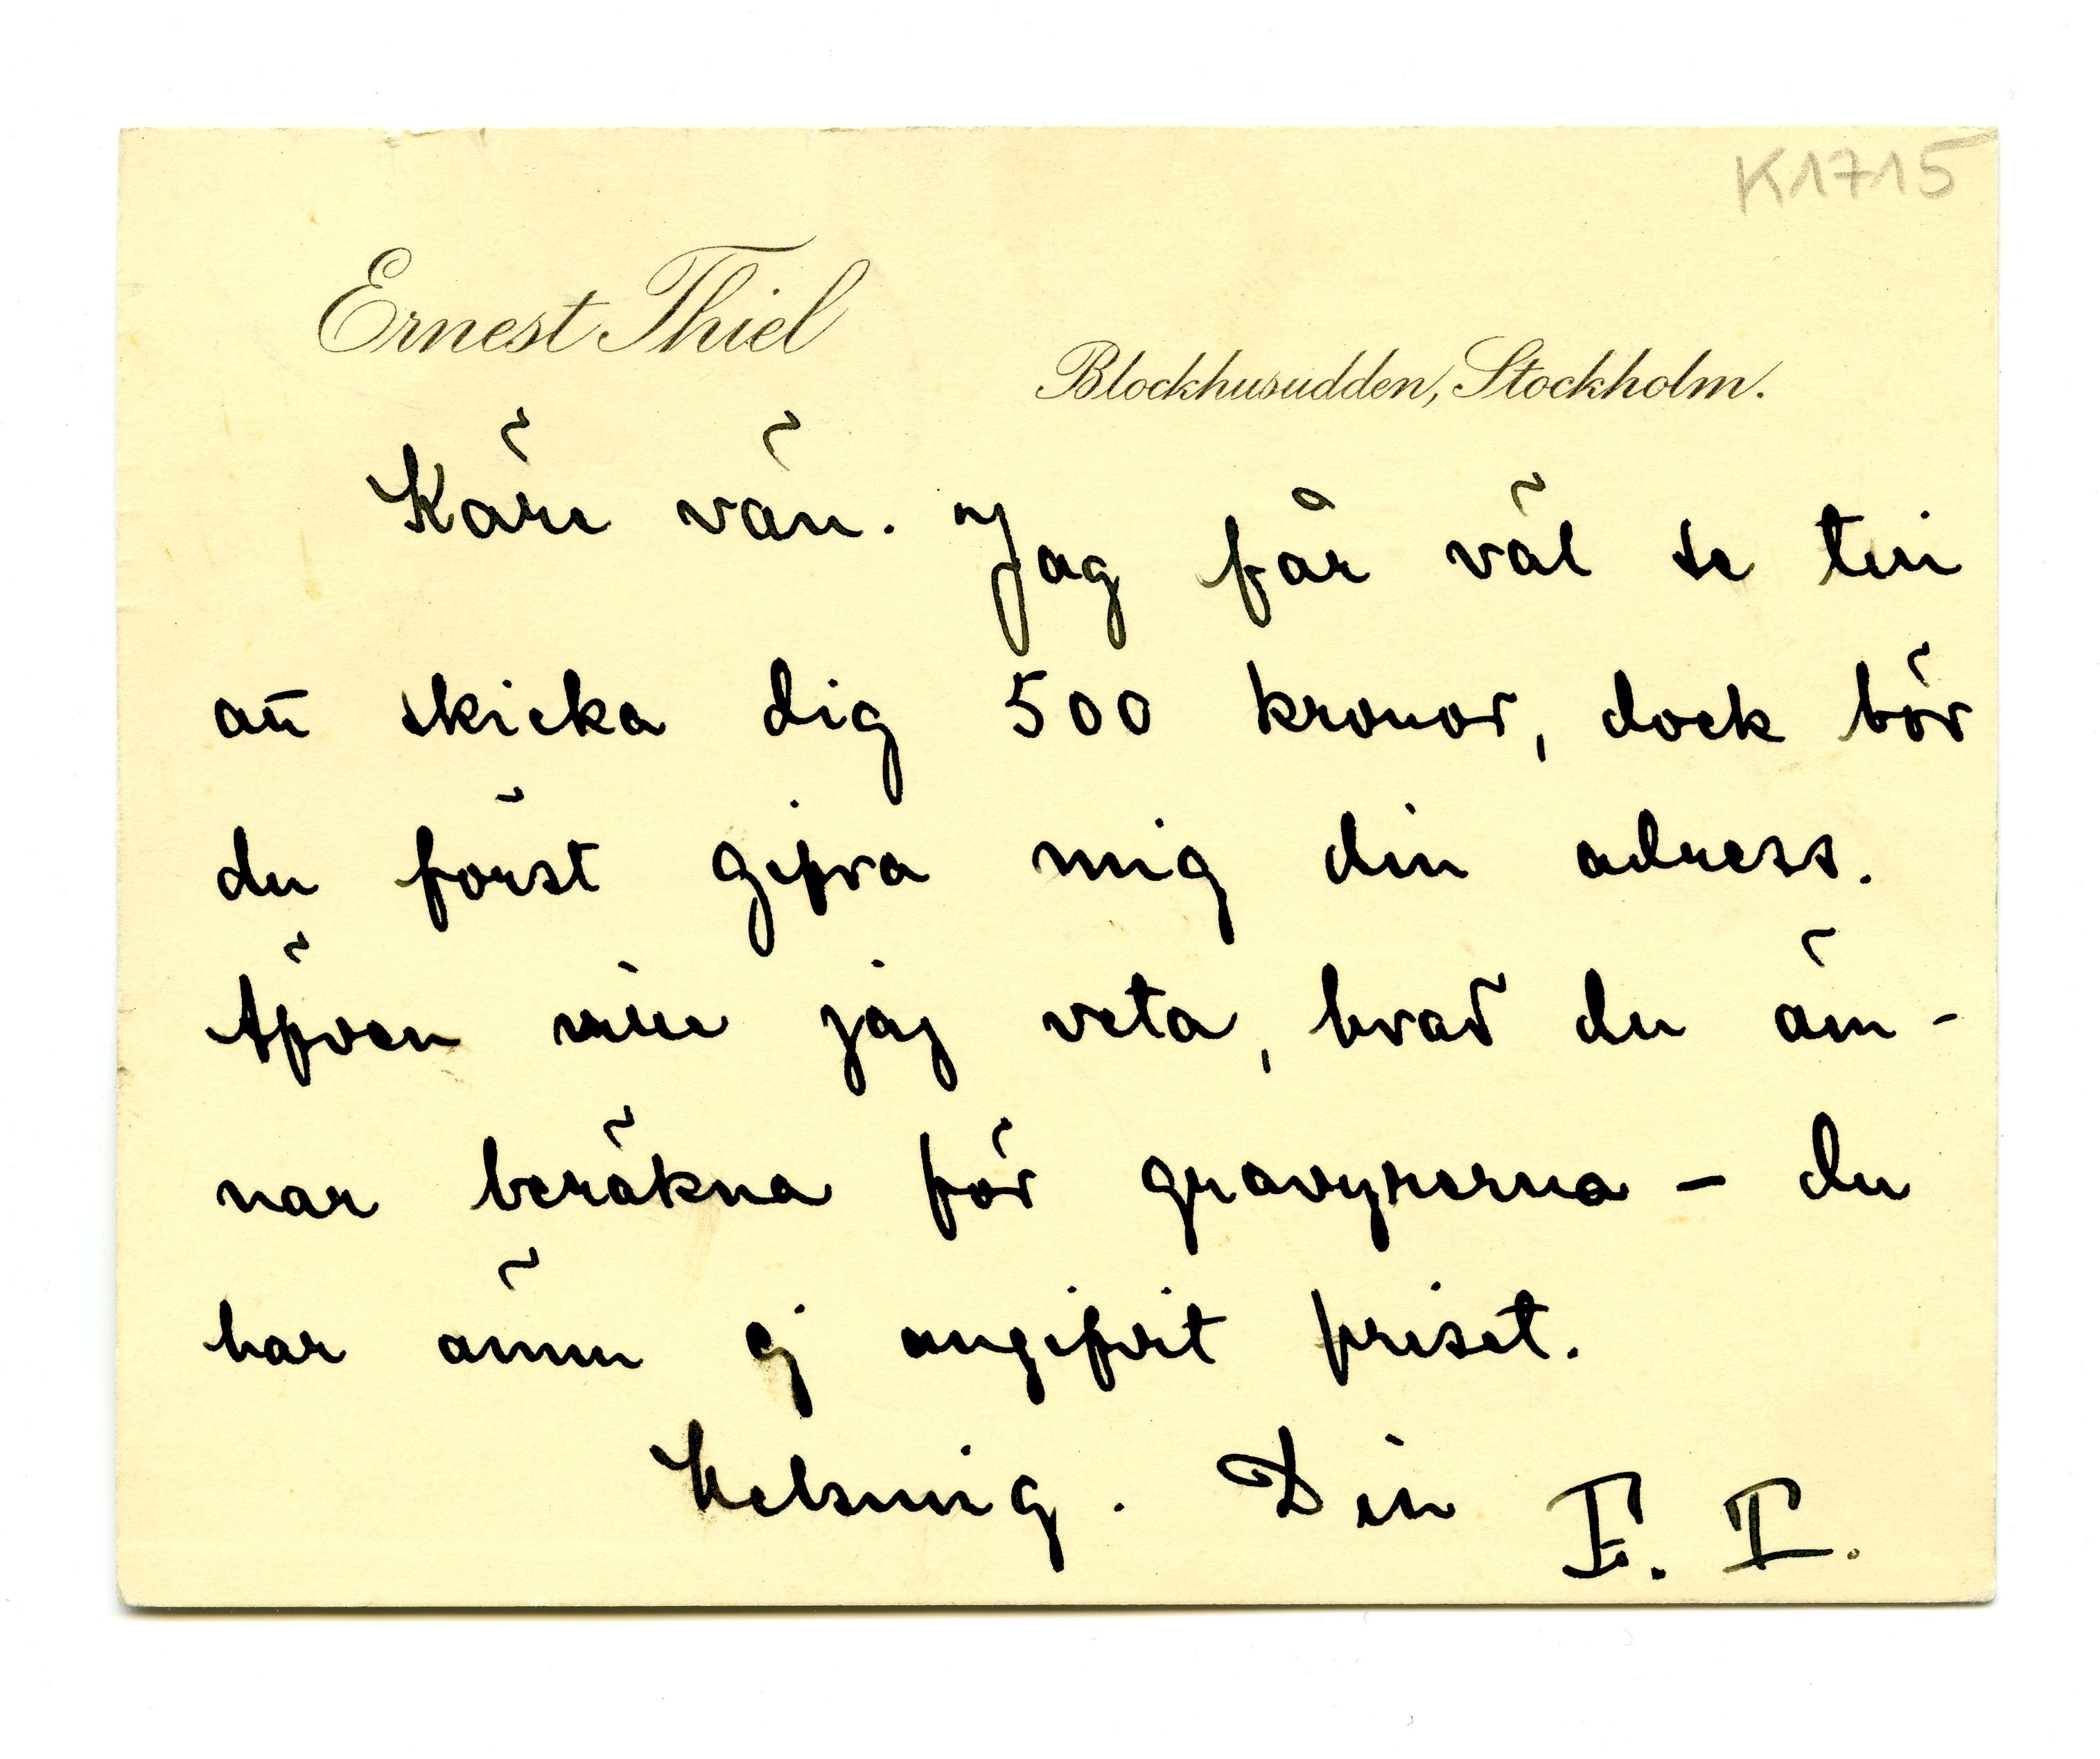 K1715
Ernest Thiel
Blockhusudden, Stockholm.
Käre vän. Jag får väl se till
att skicka dig 500 kronor, dock bör
du först gifva mig din adress.
Äfven ville jag veta, hvad du äm-
nar beräkna för gravyrerna – du
har ännu ej angifvit priset.
Helsning. Din E. T.